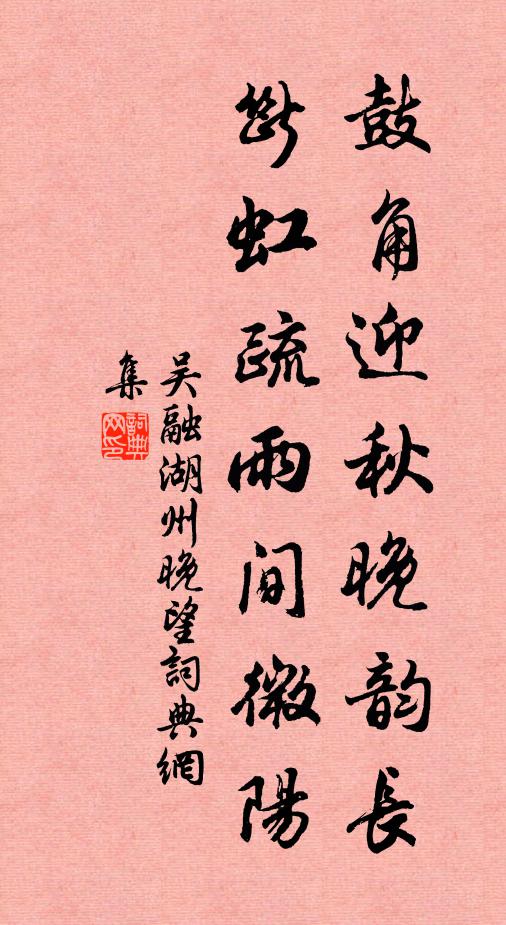 鼓角迎秋晚韵長
斷虹疏雨間微陽
吴融湖州晚望詞典網
集
詞典网印